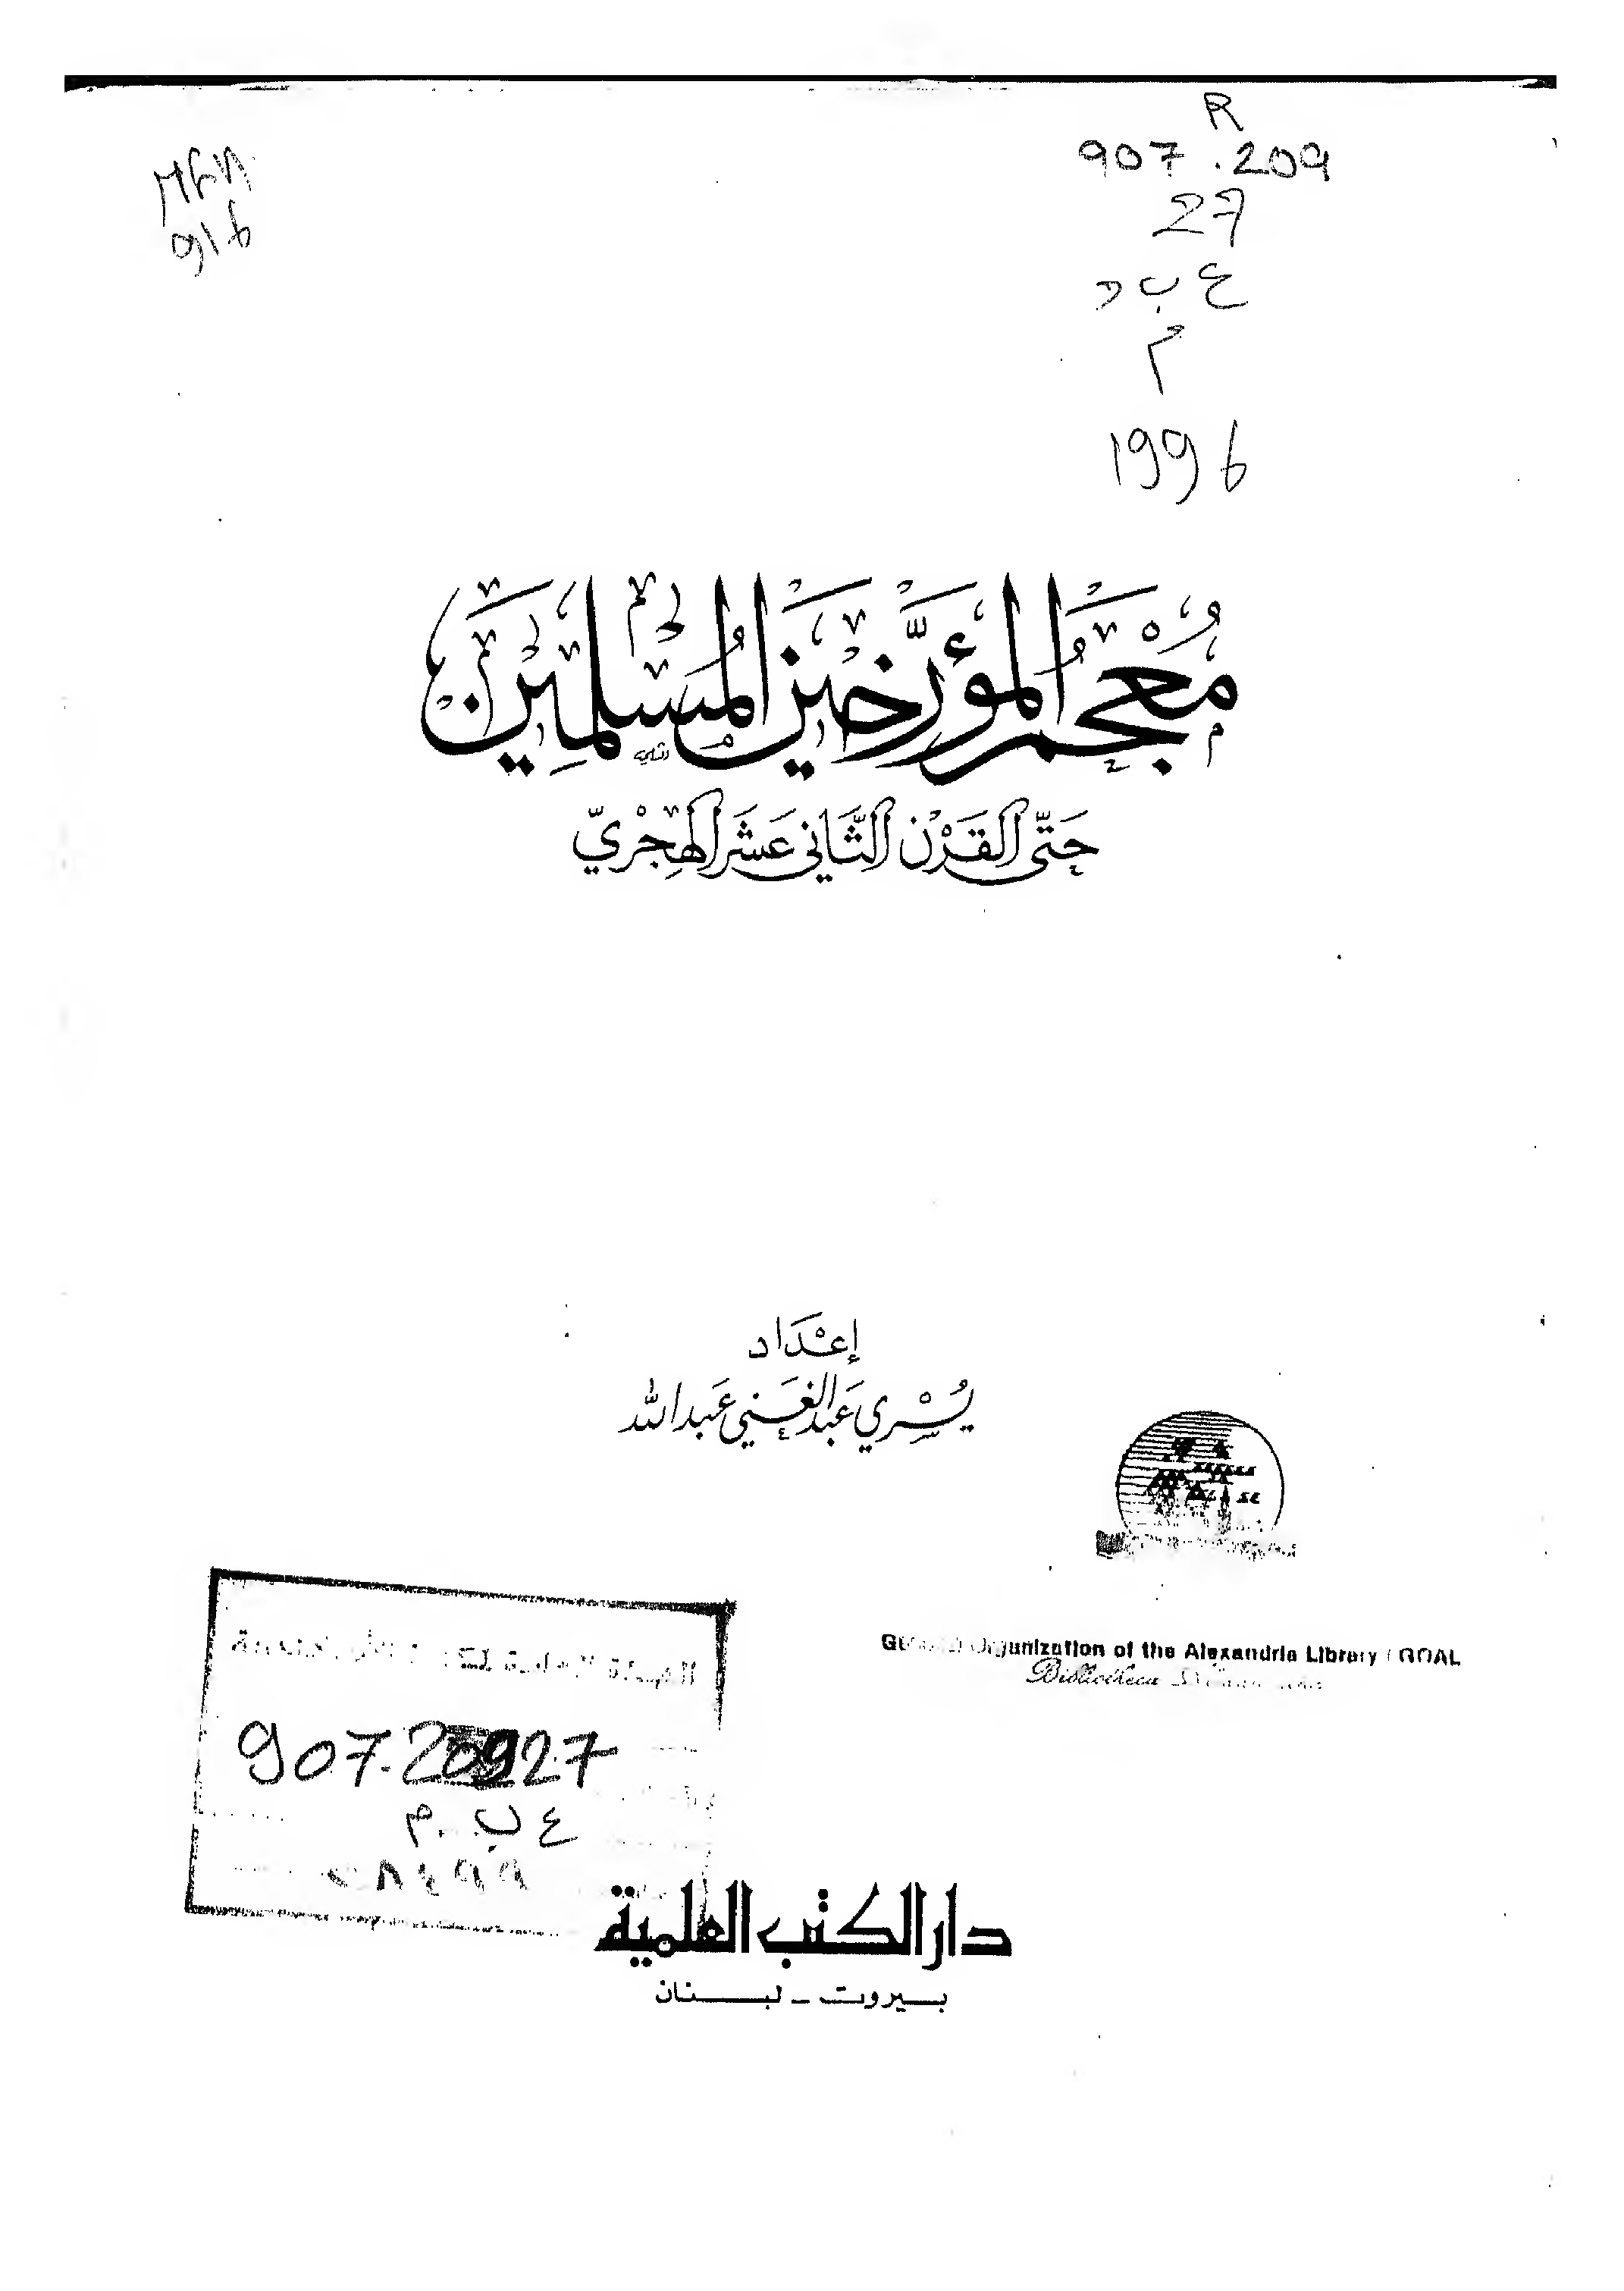 R
907.209
27
ع ب د
م
1996
MFN
916
مُعْجَمُ المُؤَرِّخِينَ المُسْلِمِينَ
حَتَّى القَرْنِ الثَّانِي عَشَرَ الهِجْرِيّ
إعْدَاد
يُسْرِي عَبدالغَنِي عَبدالله
General Organization of the Alexandria Library (GOAL
Bibliotheca
907.20927
ع ب . م
دار الكتب العلمية
بيروت - لبنان